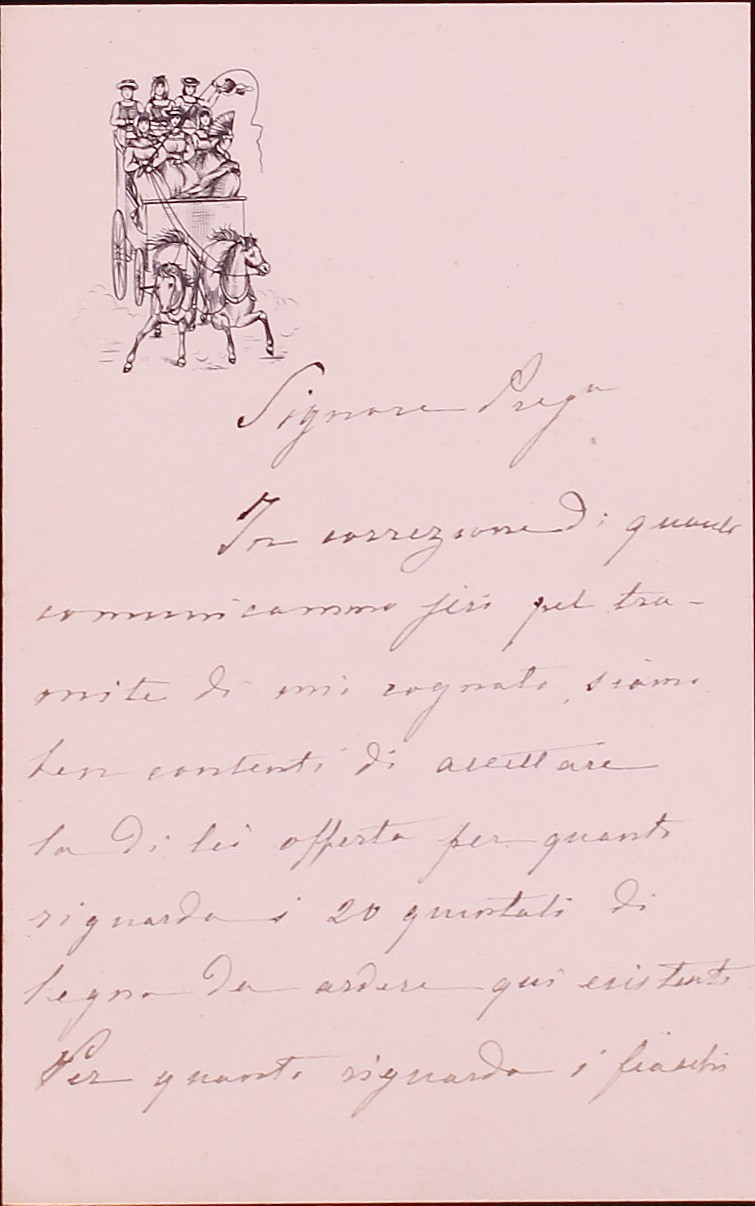 Signore Prega
In correzione di quanto
comunicammo jeri pel tra-
mite di mio cognato, siamo
ben contenti di accettare
la di lei offerta per quanto
riguarda i 20 quintali di
legna da ardere qui esistenti
Per quanto riguarda i fiaschi